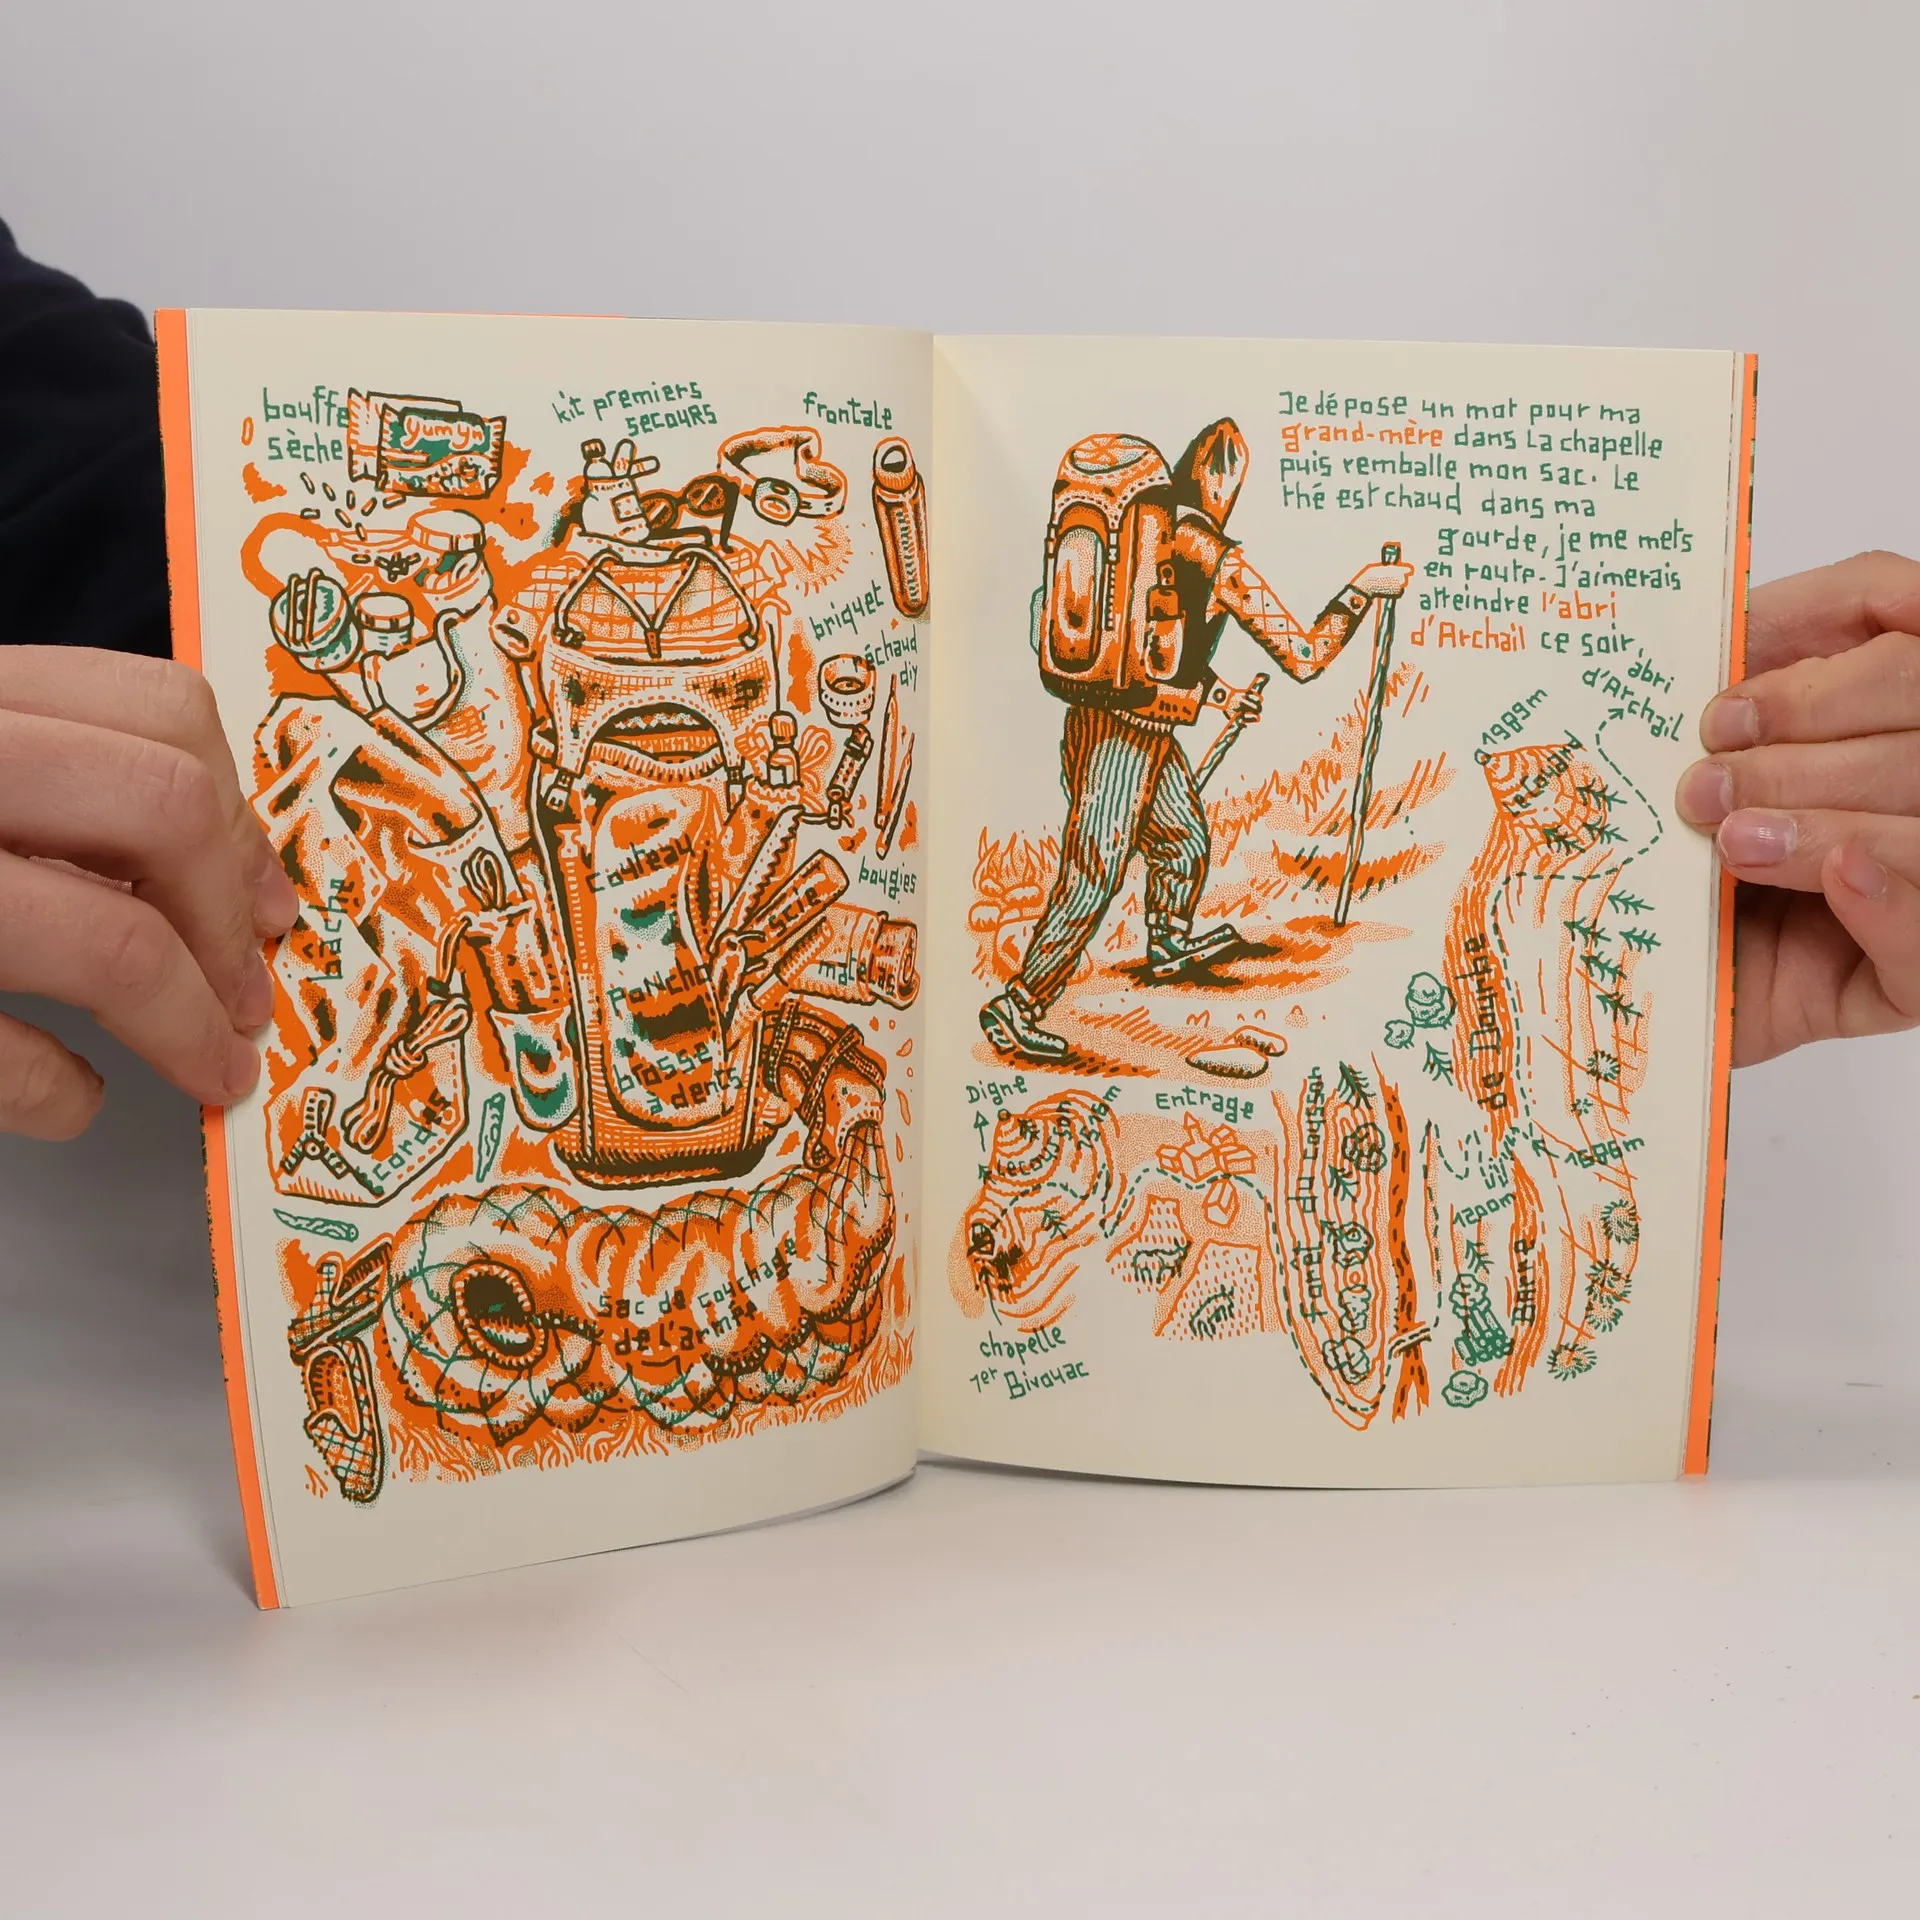 bouffe
sèche
yum yum
kit premiers
secours
frontale
briquet
réchaud
diy
couteau
bougies
scie
bâche
matelas
PoNcho
brosse
à dents
cordes
sac de couchage
de l'armée
Je dépose un mot pour ma
grand-mère dans la chapelle
puis remballe mon sac. Le
thé est chaud dans ma
gourde, je me mets
en route. J'aimerais
atteindre l'abri
d'Archail ce soir,
abri
d'Archail
1989m
Le Couard
Barre de Dourbe
Digne
Le Cousson
1516m
Entrage
Forêt du Cousson
1200m
chapelle
1er Bivouac